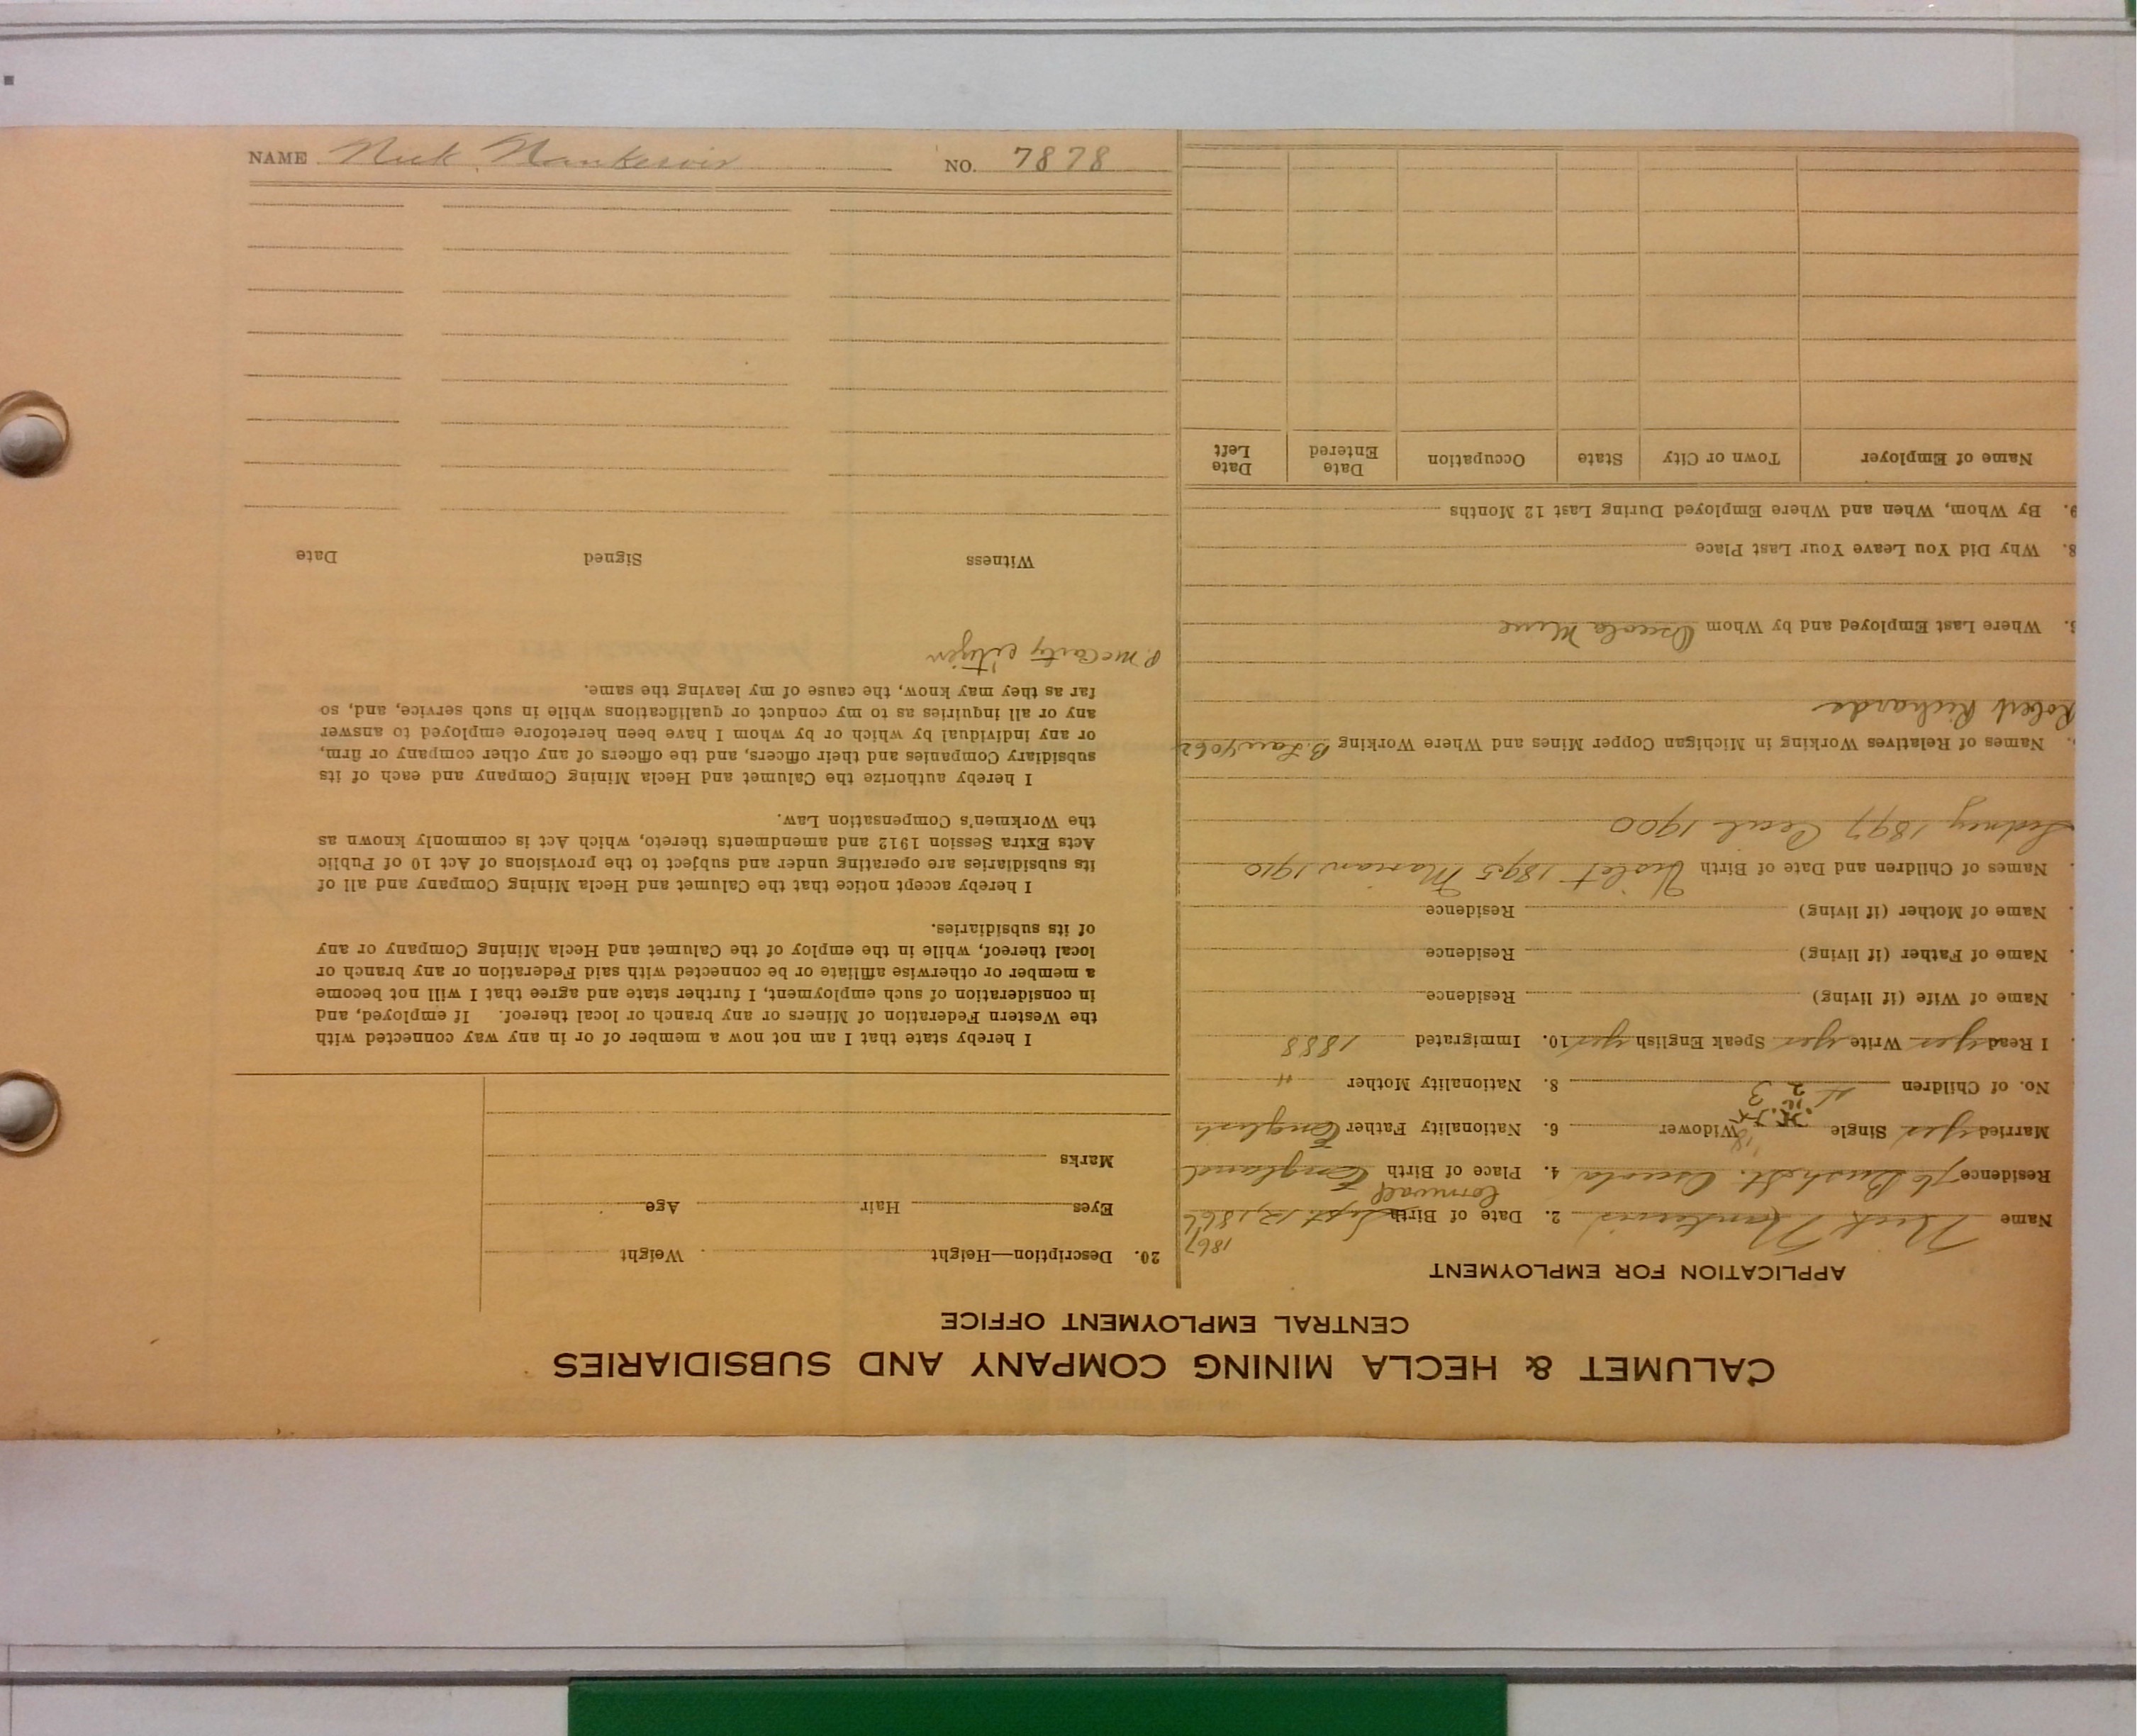 NAME Nick Nankervis NO. 7878
CALUMET & HECLA MINING COMPANY AND SUBSIDIARIES
CENTRAL EMPLOYMENT OFFICE
APPLICATION FOR EMPLOYMENT
1867
Name Nick Nankervis 2. Date of Birth Sept 12, 1866
Cornwall
Residence 76 Bush St. Osceola 4. Place of Birth England
Married yes Single Widower 6. Nationality Father English
No. of Children 4 2 3 8. Nationality Mother "
I Read yes Write yes Speak English yes 10. Immigrated 1888
Name of Wife (if living) Residence
Name of Father (if living) Residence
Name of Mother (if living) Residence
Names of Children and Date of Birth Violet 1895 Marian 1910
Sidney 1897 Cecil 1900
Names of Relatives Working in Michigan Copper Mines and Where Working B. Law 4062
Robert Richards
Where Last Employed and by Whom Osceola Mine
8. Why Did You Leave Your Last Place
9. By Whom, When and Where Employed During Last 12 Months
Name of Employer Town or City State Occupation Date Entered Date Left
20. Description—Height Weight
Eyes Hair Age
Marks
I hereby state that I am not now a member of or in any way connected with
the Western Federation of Miners or any branch or local thereof. If employed, and
in consideration of such employment, I further state and agree that I will not become
a member or otherwise affiliate or be connected with said Federation or any branch or
local thereof, while in the employ of the Calumet and Hecla Mining Company or any
of its subsidiaries.
I hereby accept notice that the Calumet and Hecla Mining Company and all of
its subsidiaries are operating under and subject to the provisions of Act 10 of Public
Acts Extra Session 1912 and amendments thereto, which Act is commonly known as
the Workmen's Compensation Law.
I hereby authorize the Calumet and Hecla Mining Company and each of its
subsidiary Companies and their officers, and the officers of any other company or firm,
or any individual by which or by whom I have been heretofore employed to answer
any or all inquiries as to my conduct or qualifications while in such service, and, so
far as they may know, the cause of my leaving the same.
P. McCarty citizen
Witness Signed Date